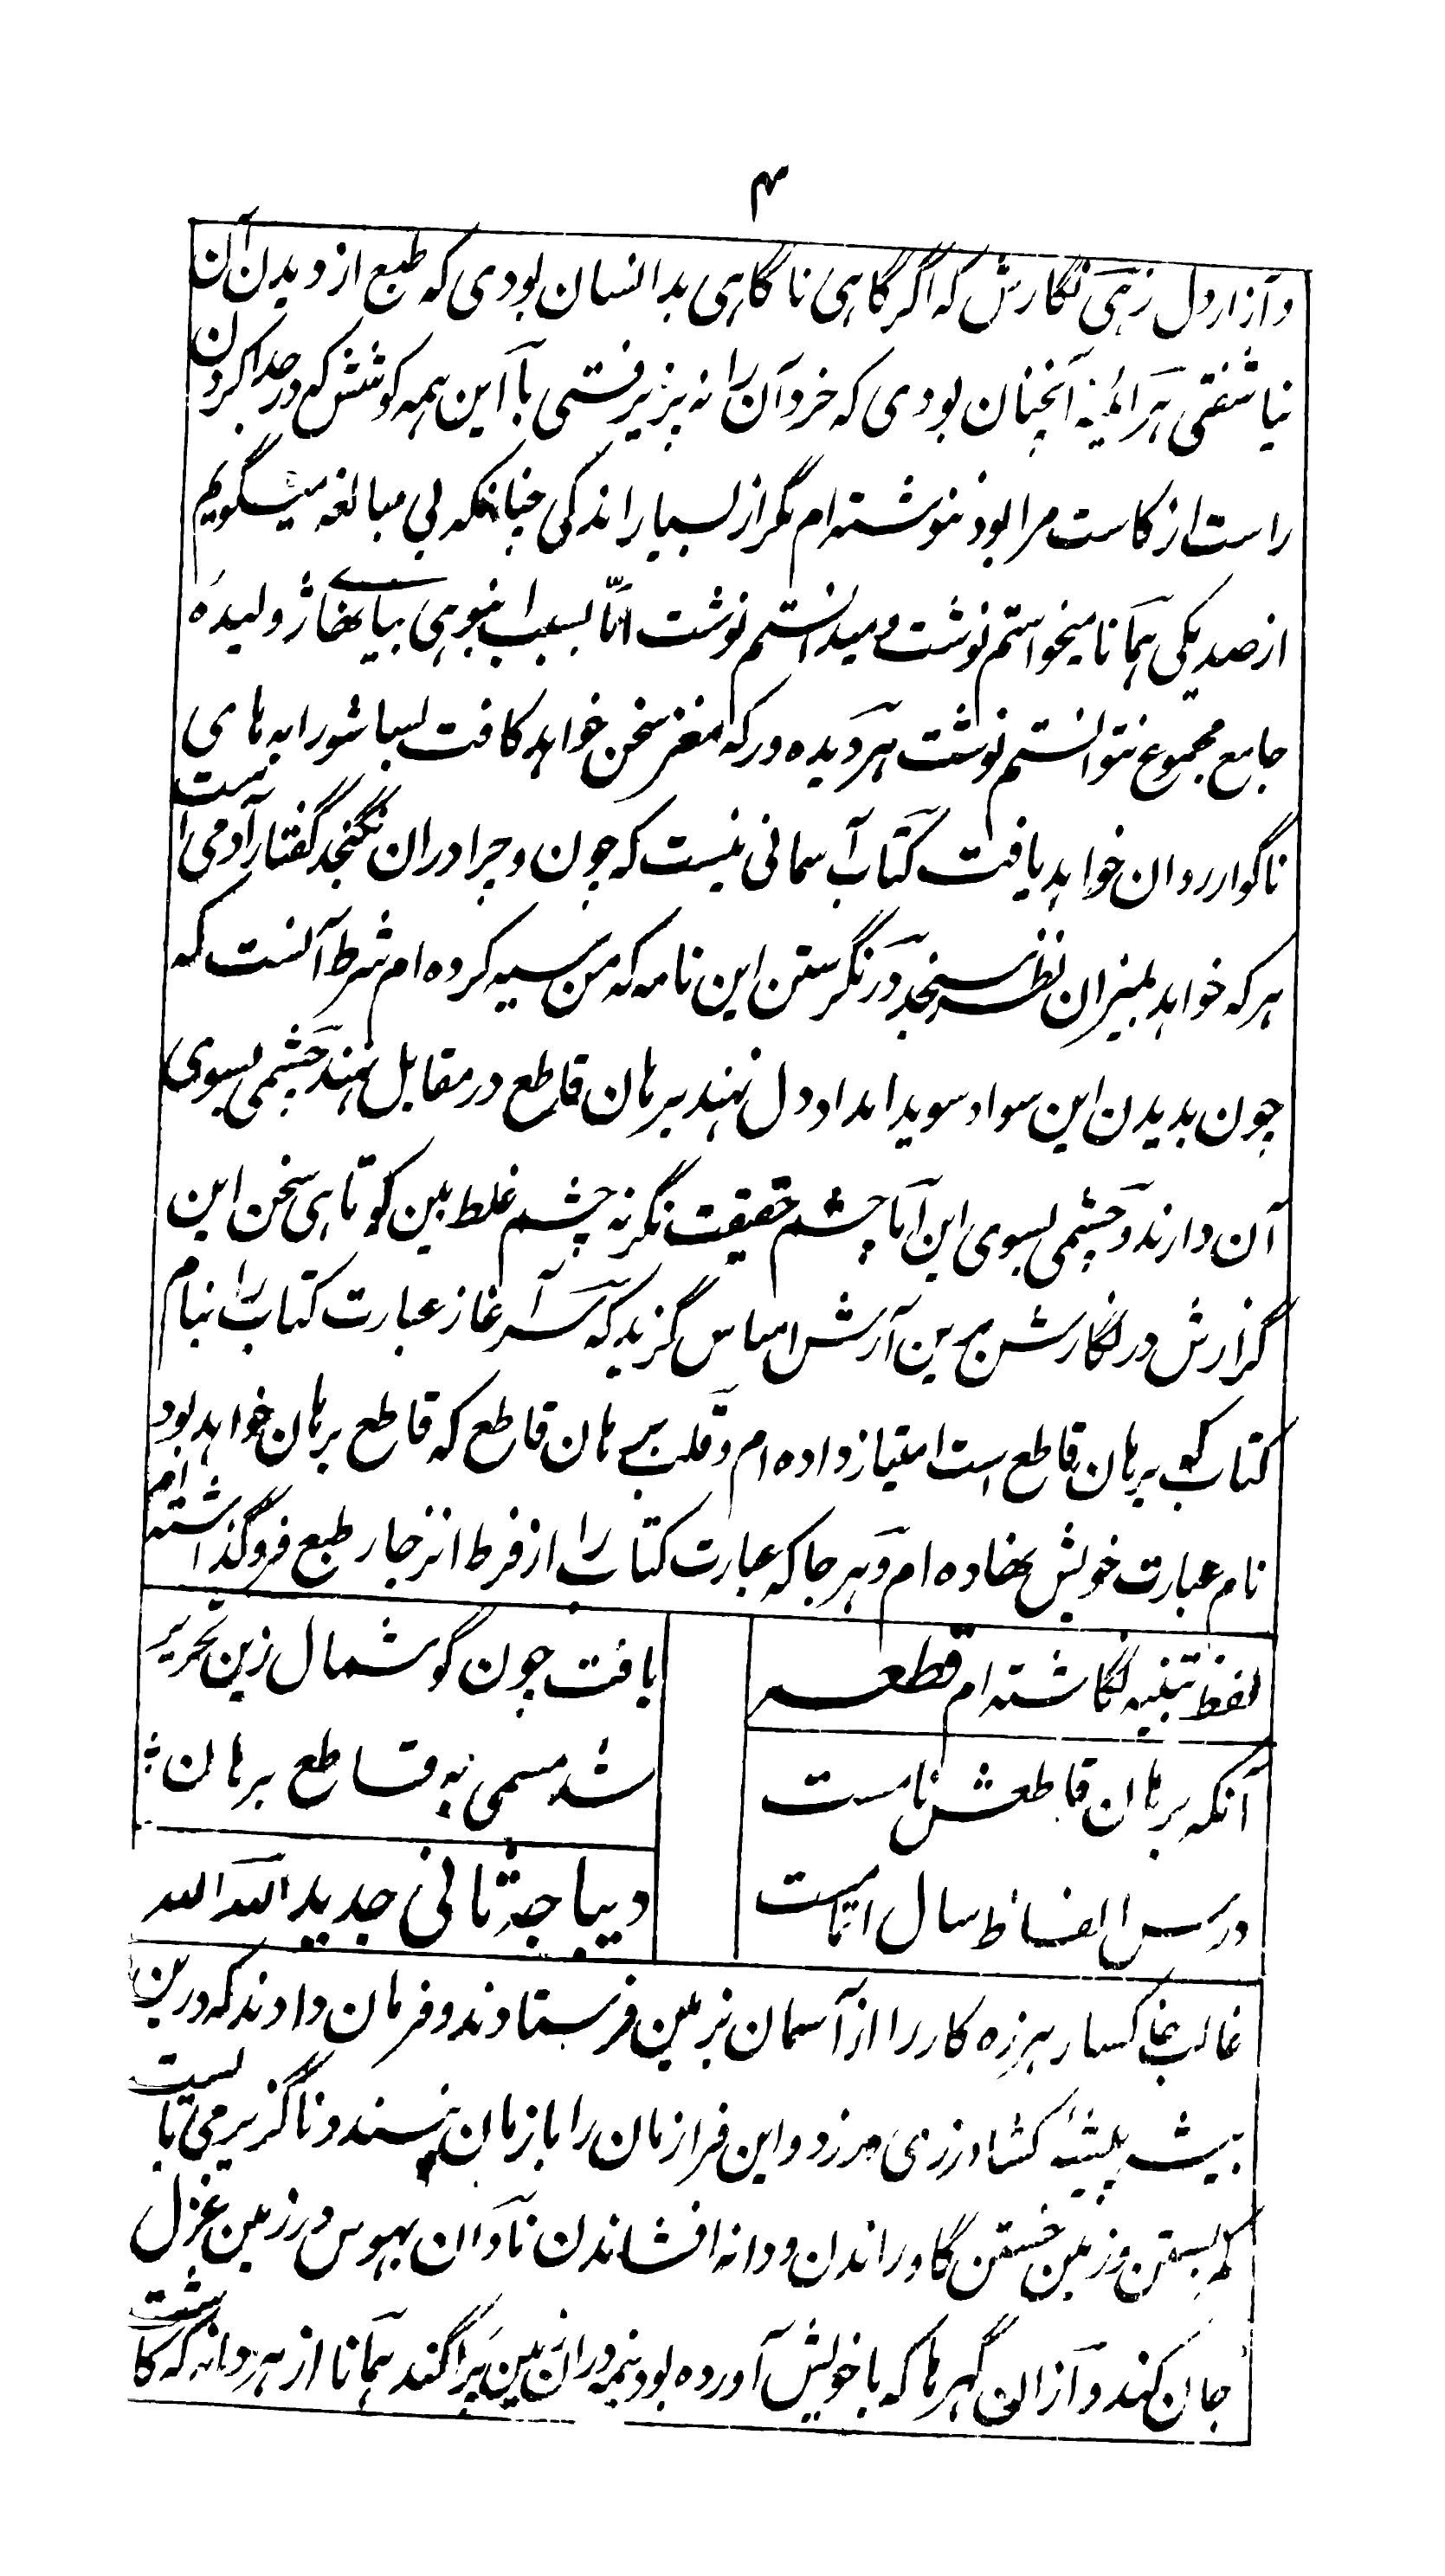 ۴
و آزار دل زہی نگارش کہ اگر گاہی ناگاہی بدانسان بودی کہ طبع از دیدن آن
نیاشفتی ہر آئینہ آنچنان بودی کہ خرد آن را نہ پزیرفتی با این ہمہ کوشش کہ در جدا کردن
راست از کاست مرا بود ننوشتہ ام مگر از بسیار اندکی چنانکہ بی مبالغہ میگویم
از صد یکی ہمانا میخواستم نوشت و میدانستم نوشت امّا بسبب انبوہی بیانہای ژولیدہ
جامع مجموع نتوانستم نوشت ہر دیدہ ور کہ مغز سخن خواہد کافت بسا شورابہ ہای
ناگوار روان خواہد یافت کتاب آسمانی نیست کہ چون و چرا دران نگنجد گفتار آدمی است
ہر کہ خواہد بمیزان نظر سنجد در نگرستن این نامہ کہ من سیہ کردہ ام شرط آنست کہ
چون بدیدن این سواد سویدا مداد دل نہند برہان قاطع در مقابل نہند چشمی بسوی
آن دارند و چشمی بسوی این اما چشم حقیقت نگر نہ چشم غلط بین کوتاہی سخن این
گزارش در نگارش برین آرش اساس گزید کہ سر آغاز عبارت کتاب را بنام
کتاب کہ برہان قاطع است امتیاز دادہ ام و قلب برہان قاطع کہ قاطع برہان خواہد بود
نام عبارت خویش نهادہ ام و ہر جا کہ عبارت کتاب را از فرط انزجار طبع فروگذاشتہ ام
لفظ تنبیہ نگاشتہ ام قطعہ
یافت چون گوشمال زین تحریر
آنکہ برہان قاطعش نامست
شد مسمی بہ قاطع برہان
درس الفاظ سال اتمامست
دیباچۂ ثانی جدید اللہ اللہ
غالب خاکسار ہرزہ کار را از آسمان بزمین فرستادند و فرمان دادند کہ درین
بیشہ پیشۂ کشاورزی ورزد و این فرازمان را بازمان نپسندد ناگزیر می بایست
کمر بستن و زمین خستن گاو راندن و دانہ افشاندن نادان بہوس در زمین غزل
جان کند و ازان گہرہا کہ با خویش آوردہ بود نیمہ دران زمین پراگند ہمانا از ہر دانہ کہ کاشت